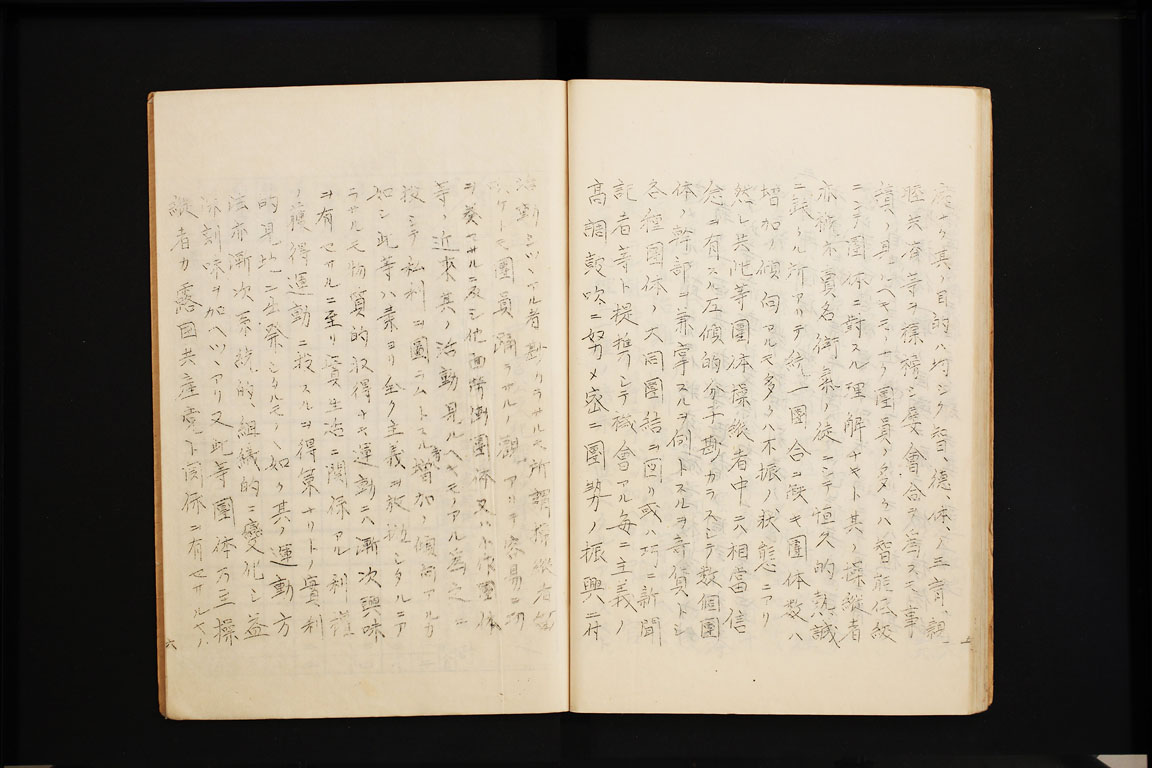 ク其ノ目的ハ均シク智、德、体、ノ三育、親
睦共濟等ヲ標榜シ屢會合ヲ為スモ事
績ノ見ルヘキモノナク團員ノ多クハ智能低級
ニシテ團体ニ對スル理解ナキト其ノ操縱者
亦概ネ賣名衒氣ノ徒ニシテ恒久的熱誠
ニ缺クル所アリテ統一團合ヲ缺キ團体数ハ
增加ノ傾向アルモ多クハ不振ノ狀態ニアリ
然レ共此等團体操縱者中ニハ相當信
念ヲ有スル左傾的分子尠カラスシテ数個團
体ノ幹部ヲ兼掌スルヲ例トスルヲ奇貨トシ
各種團体ノ大同團結ヲ図リ或ハ巧ニ新聞
記者等ト提携シテ機會アル每ニ主義ノ
高調鼓吹ニ努メ密ニ團勢ノ振興ニ付
七
活動シツヽアル者尠カラサルモ所謂操縱者等
ケーモ團員踊ラサルノ觀アリテ容易ニ
ヲ奏セサルニ反シ他面勞働團体又ハ小作團体
等ノ近來其ノ活動見ルヘキモノアル為之ニ
投シテ私利ヲ圖ラムトスル者增加ノ傾向アルカ
如シ此等ハ素ヨリ全ク主義ヲ放擲シタルニア
ラサルモ物質的取得ナキ運動ニハ漸次興味
ヲ有セサルニ至リ實生活ニ関係アル利權
ノ獲得運動ニ投スルヲ得策ナリトノ實利
的見地ニ出發シタルモノヽ如ク其ノ運動方
法亦漸次系統的、組織的ニ變化シ益
深刻味ヲ加ヘツヽアリ又此等團体乃至操
縱者カ露国共産党ト関係ヲ有セサルヤノ
六